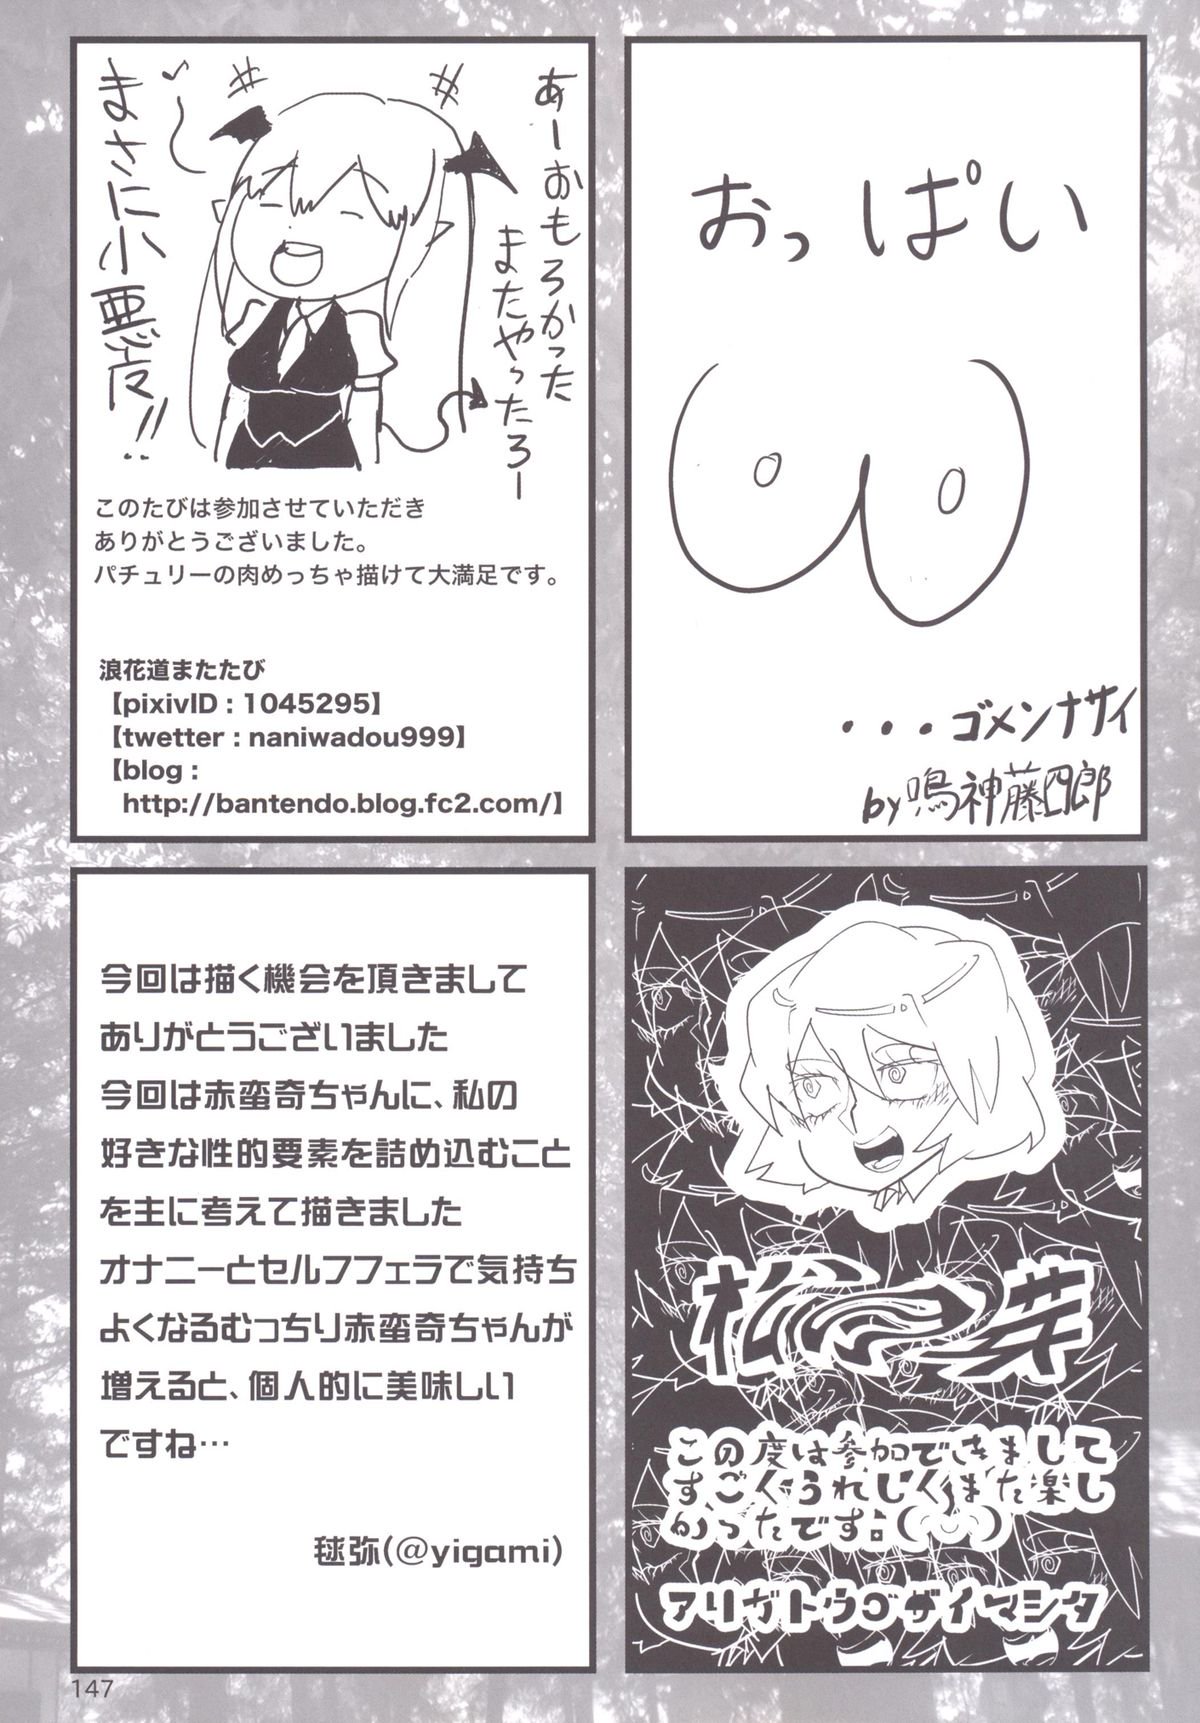 あーおもろかった
またやったろー
まさに小悪魔!!
このたびは参加させていただき
ありがとうございました。
パチュリーの肉めっちゃ描けて大満足です。
浪花道またたび
【pixivID : 1045295】
【twetter : naniwadou999】
【blog :
http://bantendo.blog.fc2.com/】
おっぱい
・・・ゴメンナサイ
by 鳴神藤四郎
今回は描く機会を頂きまして
ありがとうございました
今回は赤蛮奇ちゃんに、私の
好きな性的要素を詰め込むこと
を主に考えて描きました
オナニーとセルフフェラで気持ち
よくなるむっちり赤蛮奇ちゃんが
増えると、個人的に美味しい
ですね…
毬弥(@yigami)
松の芽
この度は参加できまして
すごくうれしく、また楽し
かったです。
アリガトウゴザイマシタ
147